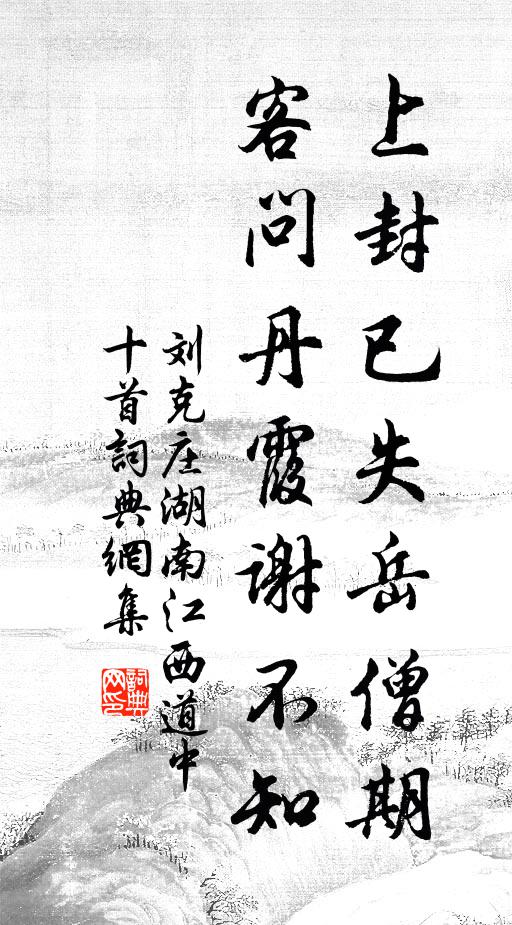 上封已失岳僧期
客问丹霞谢不知
刘克庄湖南江西道中
十首詞典網集
詞典
网印